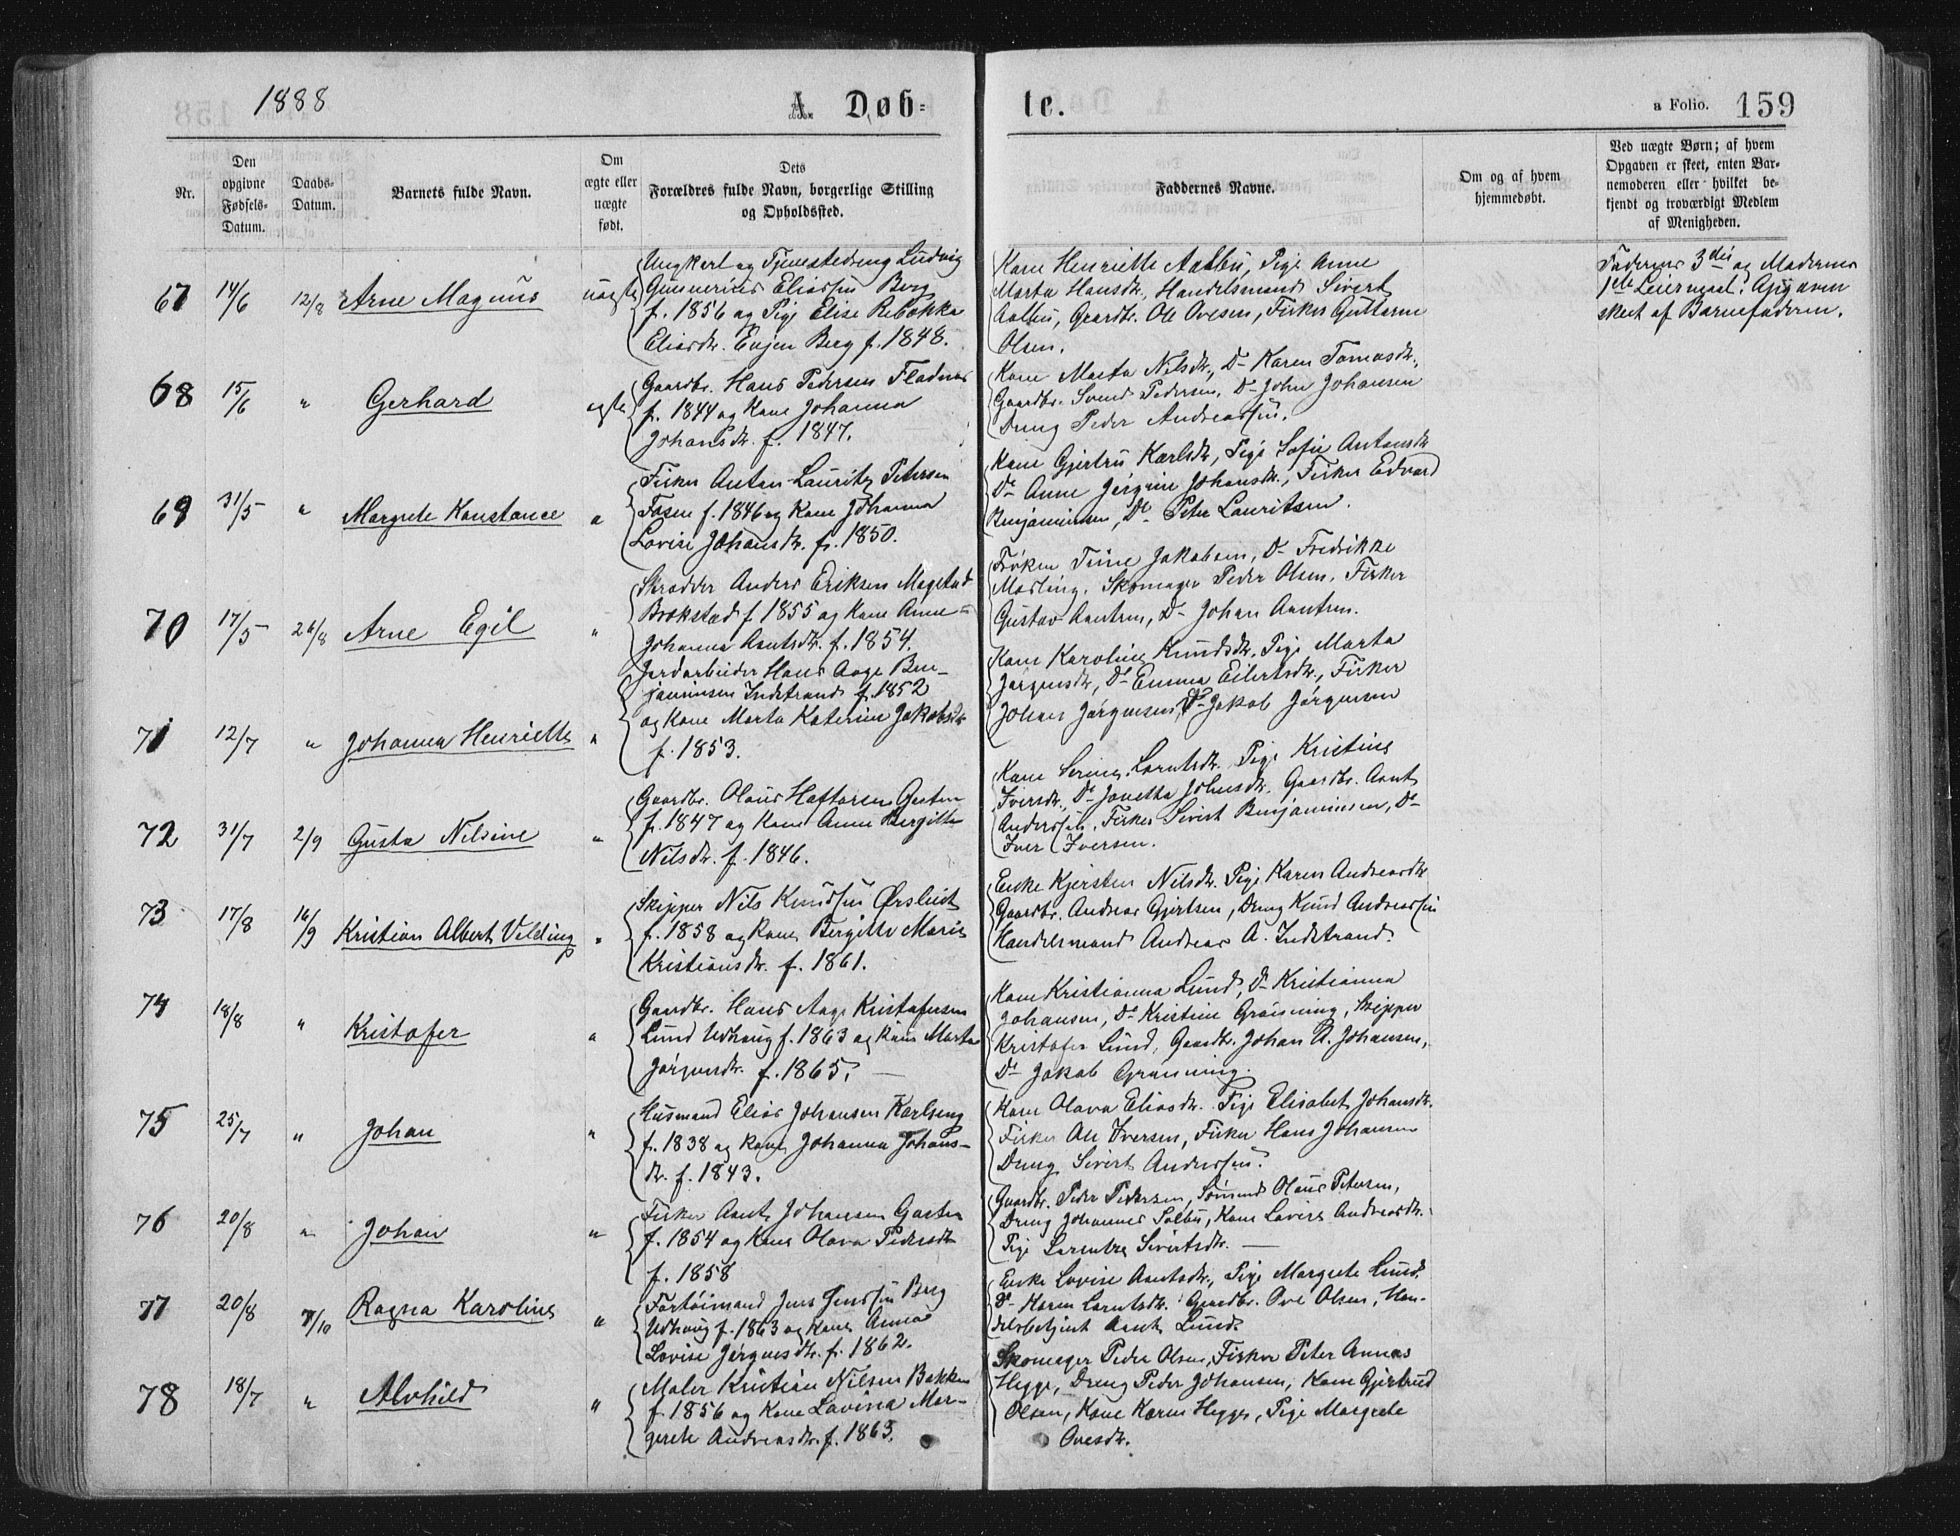 1888
A. Døb-
te.
a Folio. 159
Nr.
Den opgivne Fødsels-Datum.
Daabs-Datum.
Barnets fulde Navn.
Om ægte eller uægte født.
Dets
Forældres fulde Navn, borgerlige Stilling
og Opholdssted.
Faddernes Navne.
Om og af hvem
hjemmedøbt.
Ved uægte Børn; af hvem
Opgaven er skeet, enten Bar-
nemoderen eller hvilket be-
kjendt og troværdigt Medlem
af Menigheden.
67 14/6 12/8 Arne Magnus uægte
Ungkarl og Tjenestedreng Ludvig
Gunnerius Eliassen Berg
f. 1856 og Pige Elise Rebekka
Eliasdtr. Evjen Berg f. 1848.
Kone Henriette Aalbu, Pige Anne
Marta Hansdtr, Handelsmand Sivert
Aalbu, Gaardbr. Ole Ovesen, Fisker Guttorm
Olsen.
Faderens 3die og Moderens
1ste Leiermaal. Opgaven
skeet af Barnefaderen.
68 15/6 " Gerhard egte
Gaardbr. Hans Pedersen Fladnes
f. 1844 og Kone Johanna
Johansdtr. f. 1847.
Kone Marta Nilsdtr., Do Karen Tomasdtr.
Gaardbr. Svend Pedersen, Do John Johansen
Dreng Peder Andreassen.
69 31/5 " Margrete Konstance "
Fisker Anton Lauritz Petersen
Fosen f. 1846 og Kone Johanna
Lovise Johansdtr. f. 1850.
Kone Gjertru Karlsdtr, Pige Sofie Antonsdtr
Do Anne Jørgine Johansdtr., Fisker Edvard
Benjaminsen, Do Peter Lauritsen.
70 17/5 26/8 Arne Egil "
Skrædder Anders Eriksen Megstad
Brokstad f. 1855 og Kone Anne
Johanna Arntsdtr. f. 1854.
Frøken Trine Jakobsen, Do Fredrikke
Mosling, Skomager Peder Olsen, Fisker
Gustav Arntsen, Do Johan Arntsen.
71 12/7 " Johanna Henriette "
Jordarbeider Hans Aage Ben-
jaminsen Indstrand f. 1852
og Kone Marta Katerine Jakobsdtr
f. 1853.
Kone Karoline Knudsdtr. Pige Marta
Jørgensdtr, Do Emma Eilertsdtr., Fisker
Johan Jørgensen, Do Jakob Jørgensen
72 31/7 2/9 Gusta Nilsine "
Gaardbr. Olaus Haftorsen Garten
f. 1847 og Kone Anne Bergitte
Nilsdtr. f. 1846.
Kone Serine Lorntsdtr. Pige Kristine
Iversdtr, Do Jonetta Johnsdtr. Gaardbr. Arnt
Anderssen, Fisker Sivert Benjaminsen, Do
Iver Iversen.
73 17/8 16/9 Kristian Albert Velding "
Skipper Nils Knudsen Ørsleist
f. 1858 og Kone Bergitte Marie
Kristiansdtr. f. 1861.
Enke Kjersten Nilsdtr. Pige Karen Andreasdtr
Gaardbr. Andreas Gjertsen, Dreng Knud Andreassen
Handelsmand Andreas A. Indstrand.
74 18/8 " Kristofer "
Gaardbr. Hans Aage Kristofersen
Lund Udhaug f. 1863 og Kone Marta
Jørgensdtr. f. 1865.
Kone Kristianna Lund, Do Kristianna
Johansen, Do Kristine Grønning, Skipper
Kristofer Lund, Gaardbr. Johan A. Johansen,
Do Jakob Grønning.
75 25/7 " Johan "
Husmand Elias Johansen Karlseng
f. 1838 og Kone Johanna Johans-
dtr. f. 1843.
Kone Olava Eliasdtr. Pige Elisabet Johansdtr.
Fisker Ole Iversen, Fisker Hans Johansen
Dreng Sivert Anderssen.
76 20/8 " Johan "
Fisker Arnt Johansen Garten
f. 1854 og Kone Olava Pedersdtr
f. 1858
Gaardbr. Peder Pedersen, Sømand Olaus Petersen,
Dreng Johannes Solbu, Kone Lovise Andreasdtr.
Pige Lorentze Sivertsdtr.
77 20/8 7/10 Ragna Karoline "
Fortøimand Jens Jenssen Berg
Udhaug f. 1863 og Kone Anna
Lovise Jørgensdtr. f. 1862.
Enke Lovise Arntsdtr., Pige Margrete Lund,
Do Karen Lorntsdtr. Gaardbr. Ove Olsen, Han-
delsbetjent Arnt Lund.
78 18/7 " Alvhild "
Maler Kristian Nilsen Bakken
f. 1856 og Kone Lavina Mar-
grete Andreasdtr. f. 1863.
Skomager Peder Olsen, Fisker Peter Annas
Hegge, Dreng Peder Johansen, Kone Gjertrud
Olsen, Kone Karen Hegge, Pige Margrete
Ovesdtr.